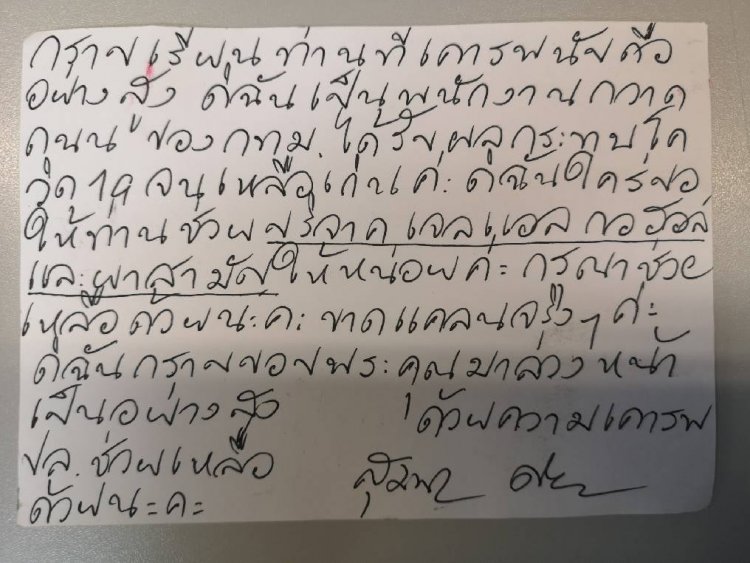 กราบเรียนท่านที่เคารพนับถือ
อย่างสูง ดิฉันเป็นพนักงานกวาด
ถนน ของกทม. ได้รับผลกระทบโค
วิด 19 จนเหลือเกินค่ะ ดิฉันใคร่ขอ
ให้ท่านช่วยบริจาค เจลแอลกอฮอล์
และผ้าอนามัยให้หน่อยค่ะ กรุณาช่วย
เหลือด้วยนะคะ ขาดแคลนจริงๆ ค่ะ
ดิฉันกราบขอบพระคุณมาล่วงหน้า
เป็นอย่างสูง ด้วยความเคารพ
ปล. ช่วยเหลือ
ด้วยนะคะ